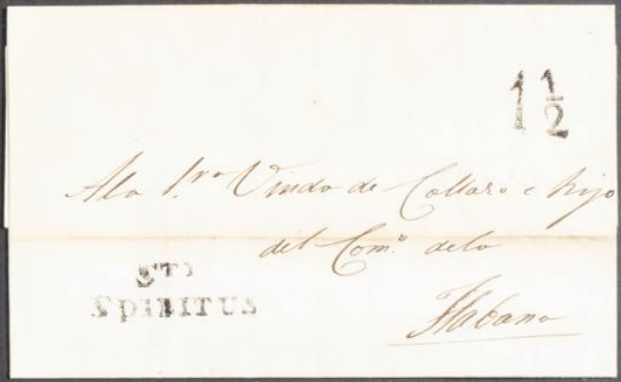 1½
A la Sra Viuda de Collazo e hijo
del Comº de la
Habana
STI
SPIRITUS